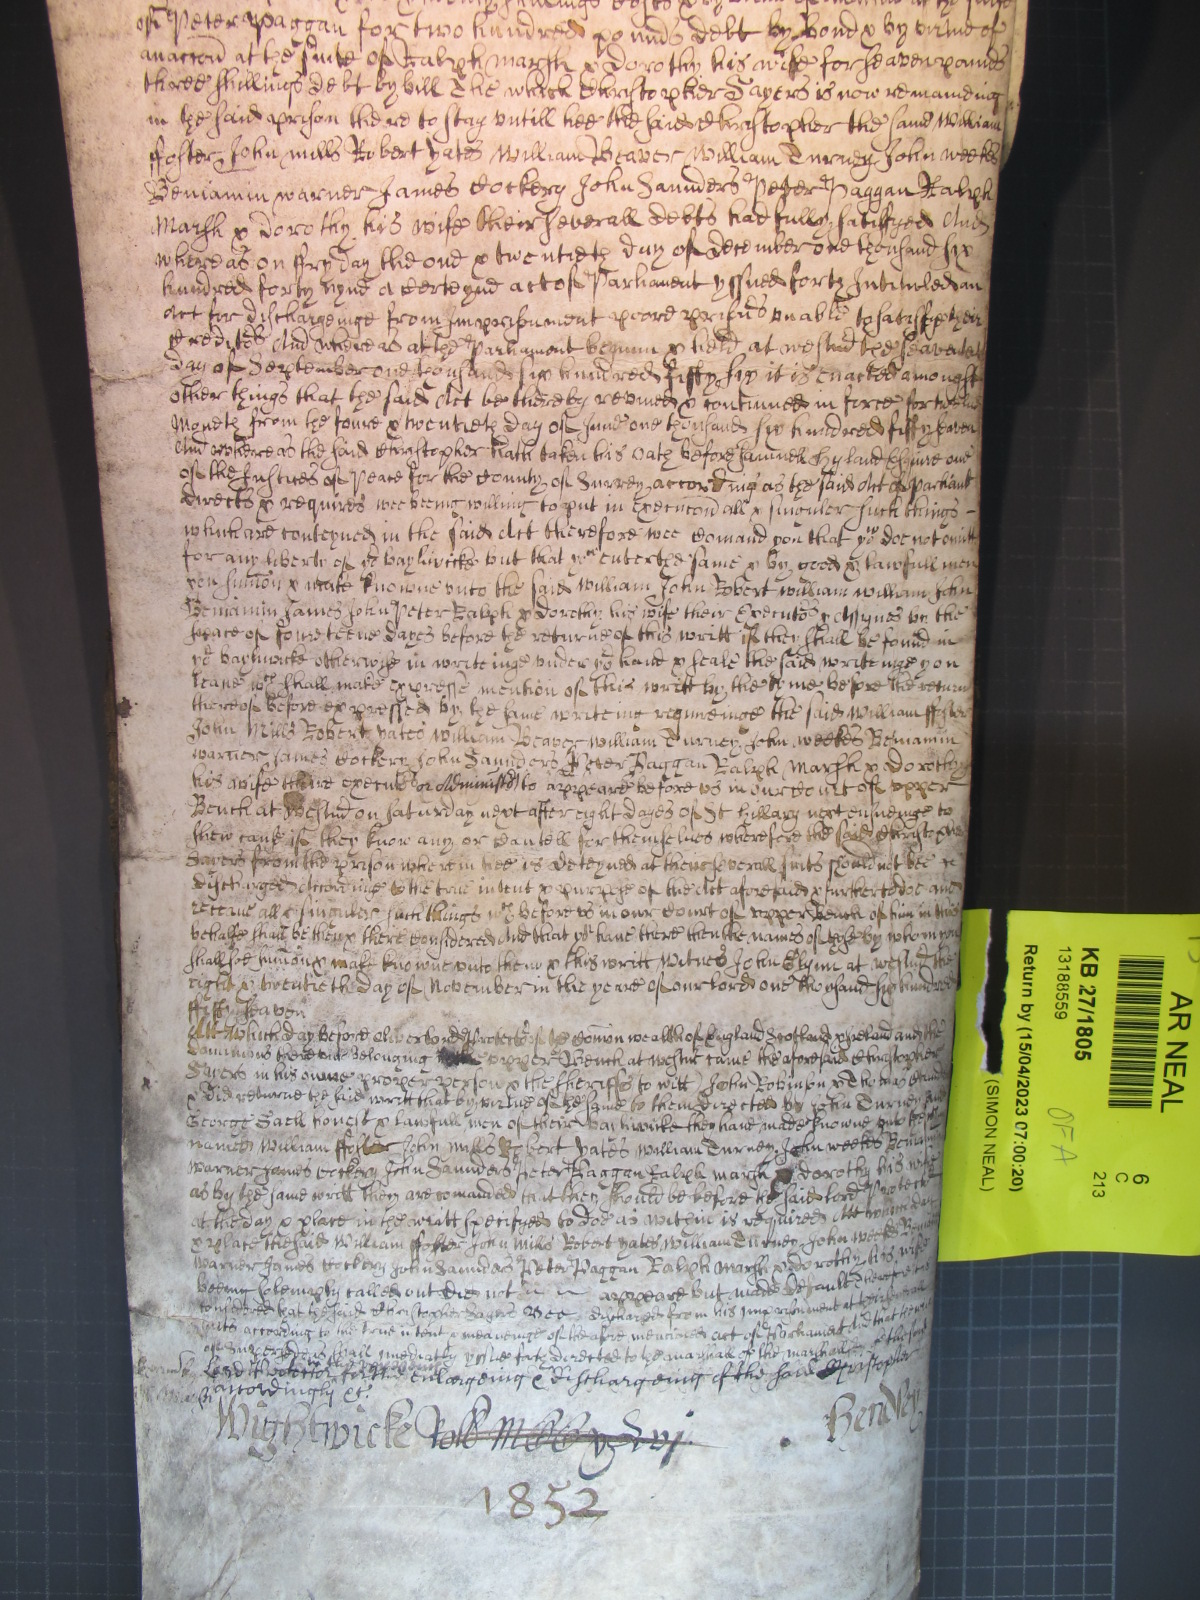 of Peter Paggan for two hundred pounds debt by bond & by virtue of
an accon at the suite of Ralph Marsh & Dorothy his wife for seaven pounds
three shillings debt by bill The which Christopher Sayers is now remaineing
in the said prison there to stay untill hee the said Christopher the said William
ffoster John Mills Robert Yates William Beaver William Turney John Weekes
Beniamin Warner James Cockery John Saunders Peter Paggan Ralph
Marsh & Dorothy his wife their severall debts had fully satisfyed And
whereas on ffryday the one & twentieth day of December one thousand six
hundred forty nyne a certeyne act of Parliament yssued forth Intituled an
Act for dischargeinge from Imprisonment poore prisons unable to satisfy their
Creditors And whereas at the Parliament begunn & held at Westmr the seaventeenth
day of September one thousand six hundred fiffty six it is enacted amongst
other things that the said Act be thereby revived & continued in force for
moneth from the foure & twentieth day of June one thousand six hundred fiffty seaven
And whereas the said Christopher hath taken his oath before Samuell Hyland Esquire one
of the Justices of Peace for the County of Surrey according as the said Act of Parliamt
directs & requires wee being willing to put in execucon all & singuler such things
which are conteyned in the said Act therefore wee comand you that you doe not omitt
for any liberty of yr bayliwicke but that you enter the same & by good & lawfull men
you sumon & make knowne unto the said William John Robert William William John
Beniamin James John Peter Ralph & Dorothy his wife their Executors & Assignes by the
space of fourteene dayes before the returne of this writt if they shall be found in
yr baylywicke otherwise in writeinge under yr hand & seale the said writeinge you
leave wch shall make expresse mention of this writt by the tyme before the returne
thereof before expressed by the same writeing requireinge the said William ffoster
John Mills Robert Yates William Beaver William Turney John Weekes Beniamin
Warner James Cockery John Saunders Peter Paggan Ralph Marsh & Dorothy
his wife their executrs or Administrs to appeare before us in our Court of upper
Bench at Westmr on Saturday next after eight dayes of St Hillary next ensueinge to
shew cause if they know any or can tell for themselves wherefore the said Christopher
Sayers from the prison wherein hee is deteyned at their severall suits should not bee
discharged according to the true intent & purpose of the Act aforesaid & further to doe and
receave all & singuler such things wch before us in our Court of upper Bench of him in this
behalfe shall be then & there considered And that you have there then the names of those by whom you
shall soe sumon & make knowne unto them & this writt Witnes John Glynn at Westmr the
eight & twentieth day of November in the yeare of our Lord one thousand six hundred
fiffty seaven
Att which day before Oliver Lord Protector of the Comon wealth of England Scotland & Ireland and the
Dominions thereunto belonging upper Bench at Westmr came the aforesaid Christopher
Sayers in his owne proper person & the sheriffs to witt John Robinson & Thomas
& did returne the said writt that by virtue of the same to them directed by John Turney and
George Sach honest & lawfull men of their bayliwicke they have made knowne unto the
named William ffoster John Mills Robert Yates William Turney John Weekes Beniamin
Warner James Cockery John Saunders Peter Paggan Ralph Marsh & Dorothy his wife
as by the same writt they are comanded that they should be before the said Lord Protector
at the day & place in the writt specifyed to doe as within is required Att which day
& place the said William ffoster John Mills Robert Yates William Turney John Weekes Beniamin
Warner James Cockery John Saunders Peter Paggan Ralph Marsh & Dorothy his wife
beeing solempnly called out did not appeare but made default Therefore it is
considered that the said Christopher Sayers bee dischardged from his Imprisonment at their severall
suits according to the true intent & meaneinge of the afore mentioned act of Parliament And that the writt
of Supersedeas shall imediatly yssue forth directed to the marshall of the marshalsea of the said
Lord Protector for the enlargeing & dischargeing of the said Christopher
accordingly &c
Wightwicke Henley
1852
AR NEAL
6
C
213
KB 27/1805
13188559
OFA
Return by (15/04/2023 07:00:20)
(SIMON NEAL)